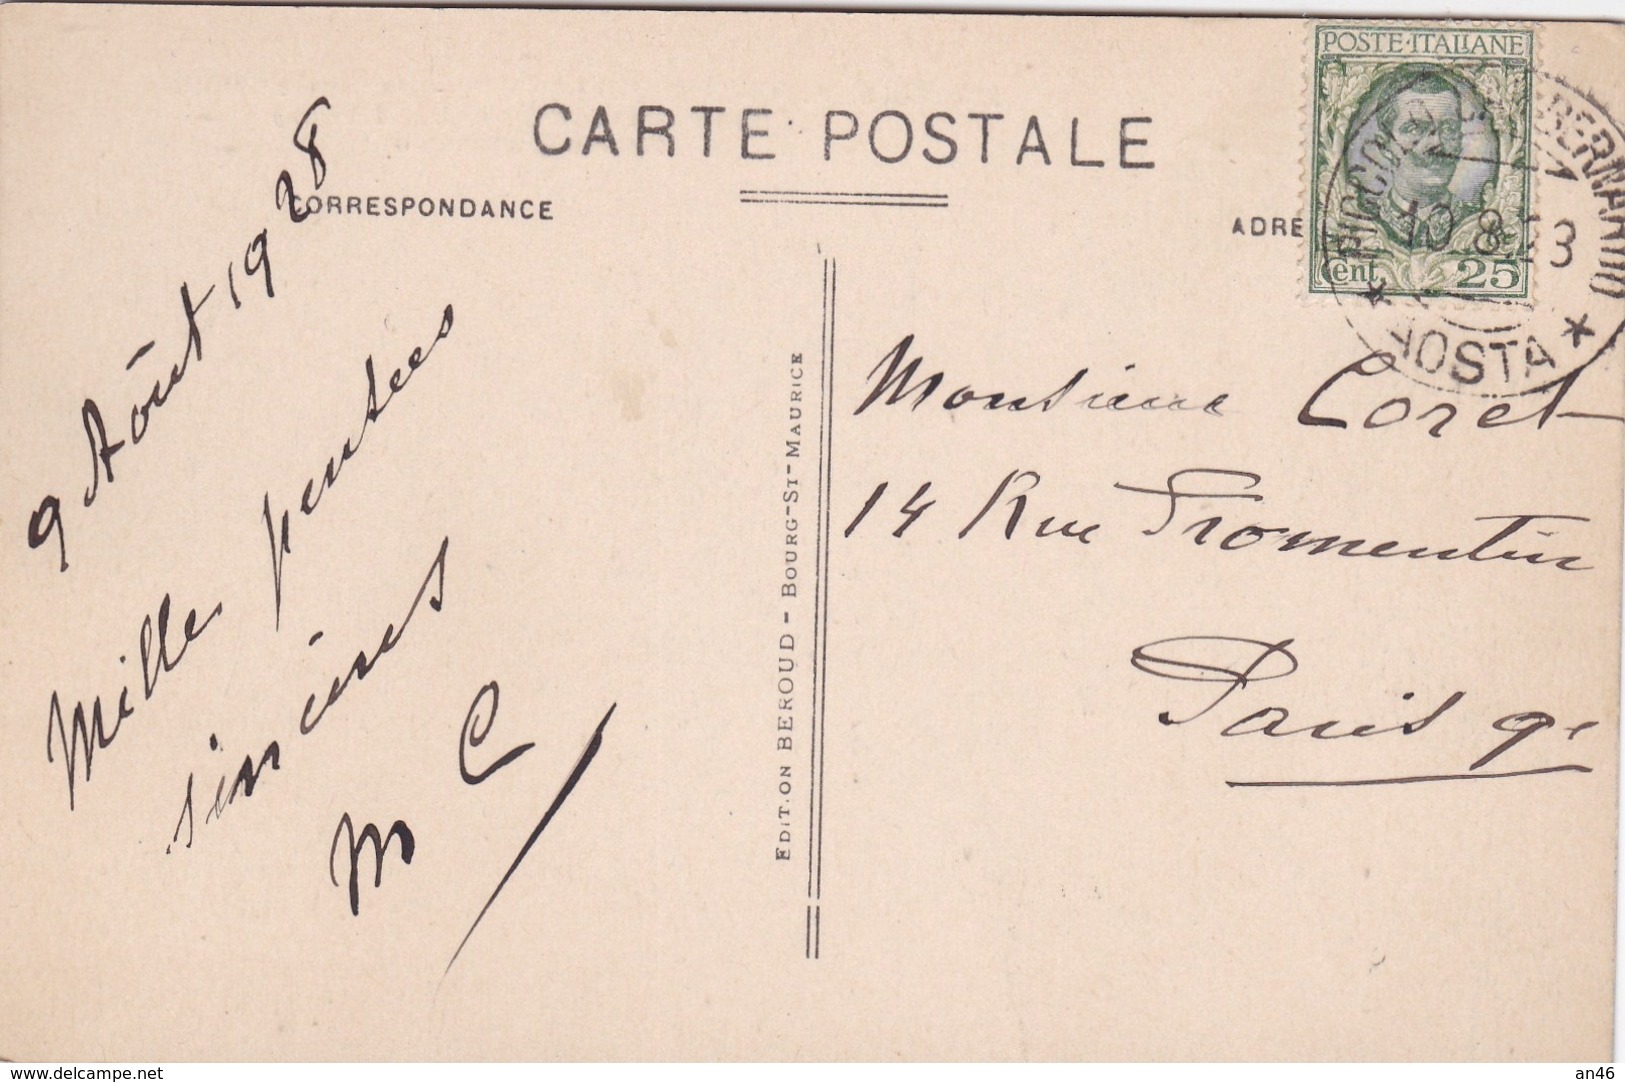 CARTE POSTALE
CORRESPONDANCE
ADRE
POSTE ITALIANE
Cent. 25
PICCOLO S. BERNARDO
10 8
* AOSTA *
9 Août 1928
Mille pensées
sincères
M C
EDITION BEROUD - BOURG-ST-MAURICE
Monsieur Coret
14 Rue Fromentin
Paris 9e
www.delcampe.net
an46